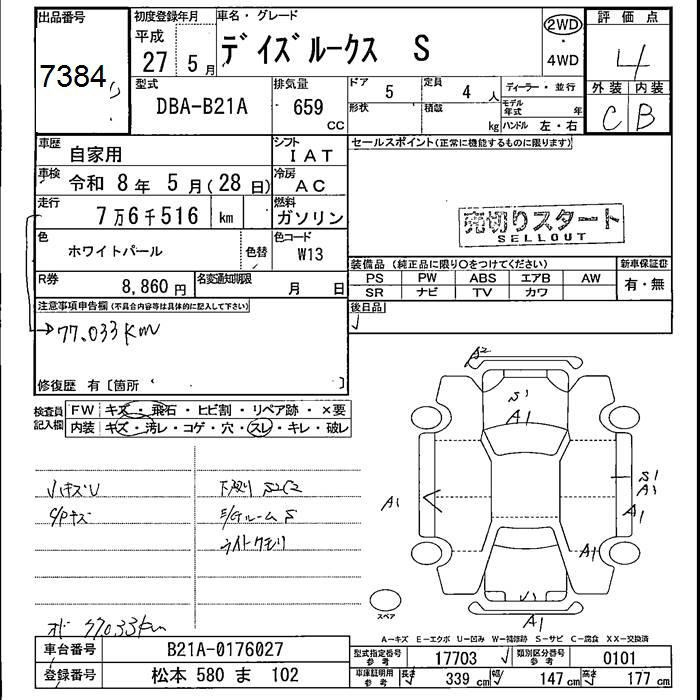 出品番号
7384
初度登録年月
平成
27 5月
車名・グレード
デイズルークス S
2WD
・
4WD
評価点
4
外装 内装
C B
型式
DBA-B21A
排気量
659
cc
ドア
5
定員
4 人
形状
積載
kg
ディーラー・並行
モデル年式
年
ハンドル 左・右
車歴
自家用
シフト
IAT
車検
令和 8年 5月(28日)
冷房
AC
走行
7万6千516 km
燃料
ガソリン
色
ホワイトパール
色替
色コード
W13
R券
8,860円
名変通知期限
月 日
セールスポイント(正常に機能するものに限ります)
売切りスタート
SELLOUT
装備品 (純正品に限り○をつけてください)
新車保証書
PS PW ABS エアB AW
SR ナビ TV カワ
有・無
後日品
注意事項申告欄(不具合内容等は具体的に記入して下さい)
→77.033km
修復歴 有〔箇所 〕
検査員
記入欄
FW キズ・飛石・ヒビ割・リペア跡・×要
内装 キズ・汚レ・コゲ・穴・スレ・キレ・破レ
小キズU
下廻り S2C2
E/Gルーム S
ライトクモリ
77.033km
A2
S1
A1
A1
S1
A1
A1
A1
A1
スペア
A-キズ E-エクボ U-凹み W-補修跡 S-サビ C-腐食 XX-交換済
車台番号
B21A-0176027
登録番号
松本 580 ま 102
型式指定番号
参考
17703
類別区分番号
参考
0101
車庫証明用
参考
長さ 339 cm 幅 147 cm 高さ 177 cm